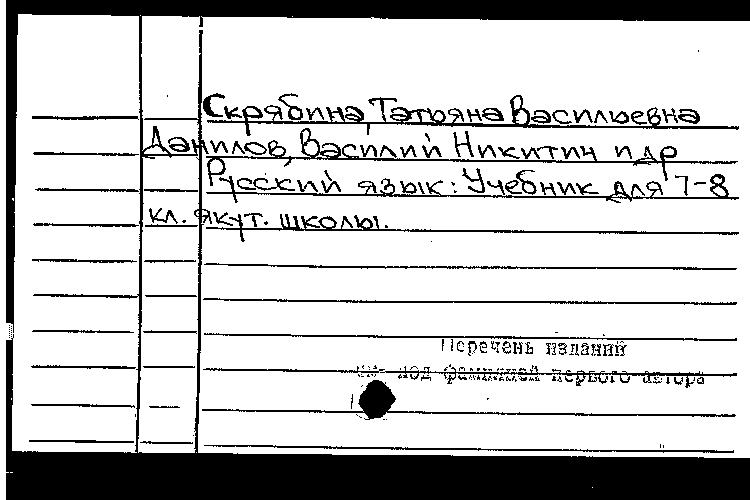 Скрябина, Татьяна Васильевна
Данилов, Василий Никитич и др
Русский язык: Учебник для 7-8
кл. якут. школы.
Перечень изданий
см. под фамилией первого автора